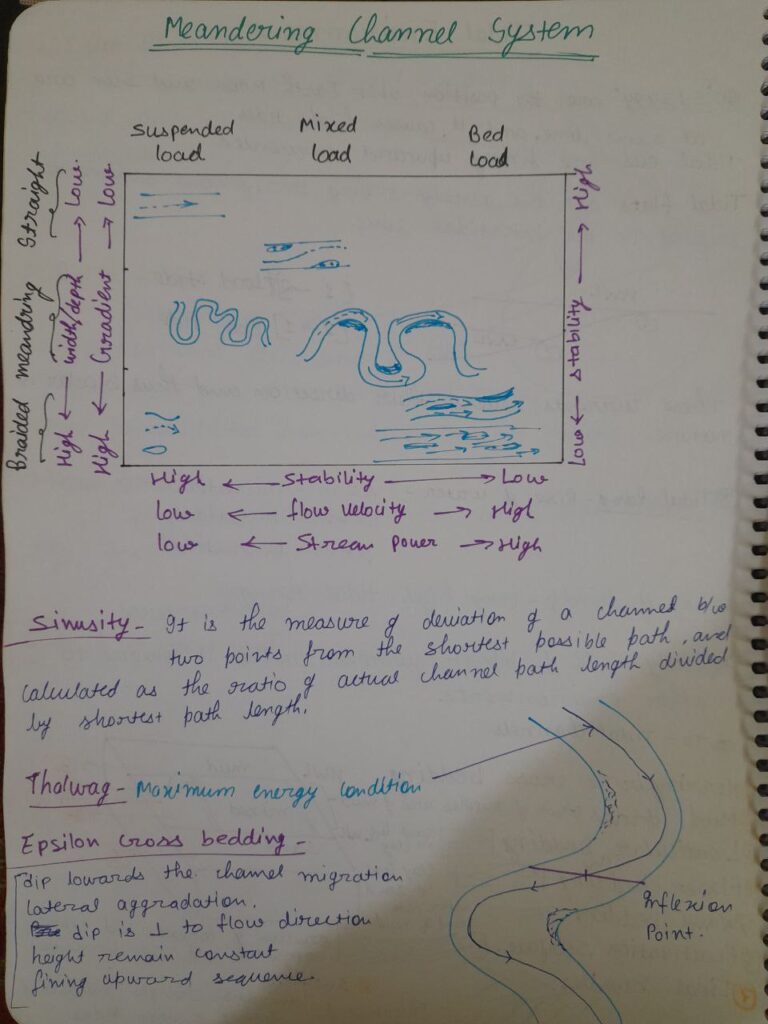 Meandering Channel System
Suspended load
Mixed load
Bed load
Straight
meandring
Braided
High ← width/depth → Low
High ← Gradient → Low
Low ← Stability → High
High ← Stability → Low
low ← flow velocity → High
low ← Stream Power → High
Sinusity - It is the measure of deviation of a channel b/w
two points from the shortest possible path, and
calculated as the ratio of actual channel path length divided
by shortest path length.
Thalwag - Maximum energy condition
Epsilon cross bedding -
dip towards the channel migration
lateral aggradation.
dip is ⊥ to flow direction
height remain constant
fining upward sequence
Inflexion
Point.